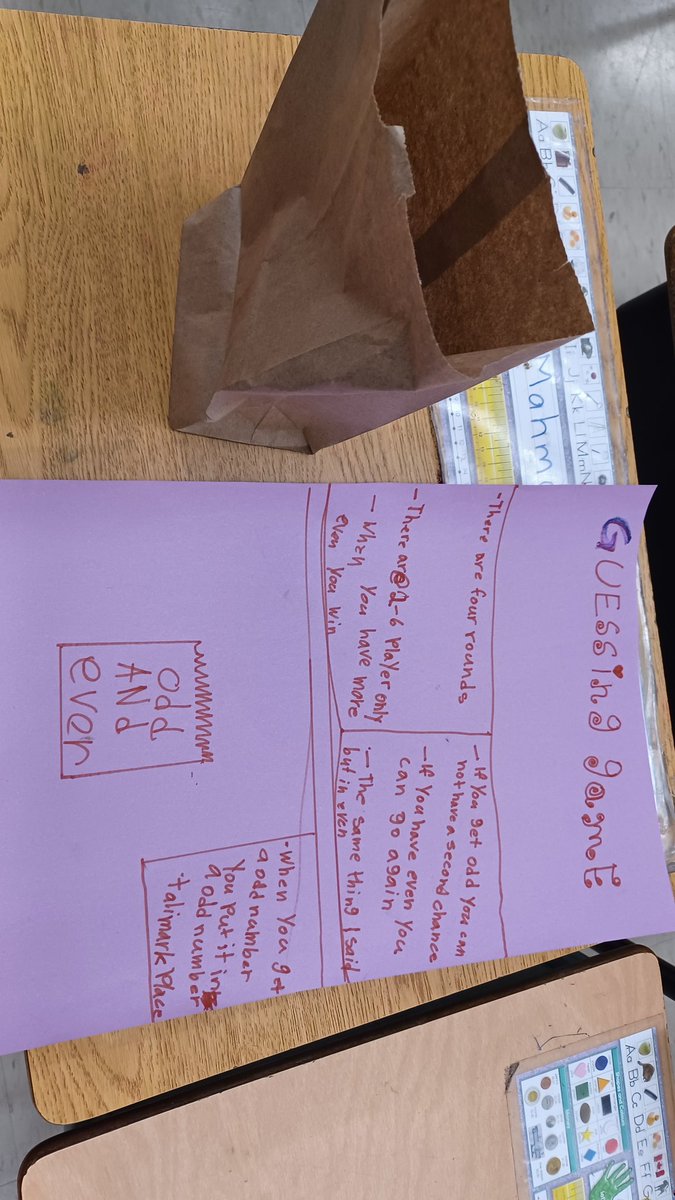 Guessing gamE
-There are four rounds
-There are 2-6 Player only
- When You have more
even You win
- If You get odd You can
not have a second chance
-If You have even You
can go again
- The same thing I said
but in even
-When You get
a odd number
You put it in
a odd number
talimark Place
Odd
AND
even
Aa Bb
Mahm
Jj Kk Ll Mm
Aa Bb Cc Dd Ee Ff
Shapes and Colors